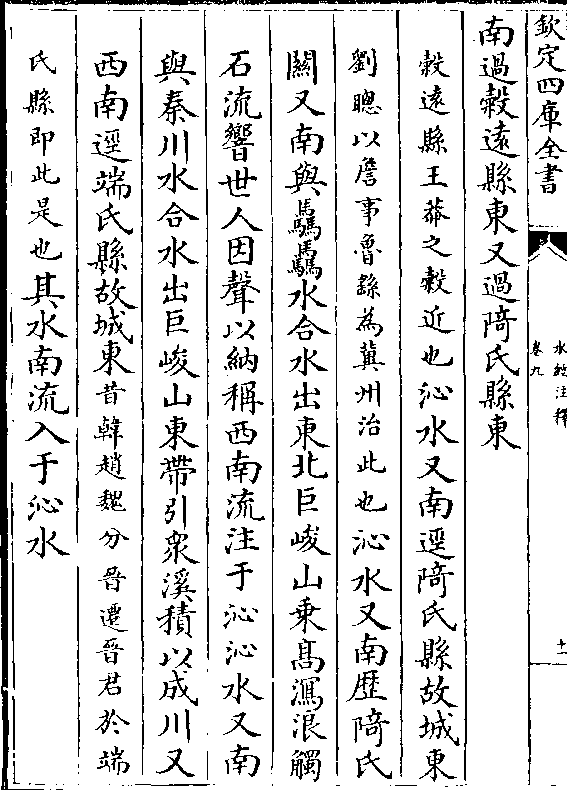 欽定四庫全書
水經注釋
卷九
十一
南過縠遠縣東又過陭氏縣東
縠遠縣王莽之縠近也沁水又南逕陭氏縣故城東
劉聰以詹事魯繇為冀州治此也沁水又南歷陭氏
闗又南與驫驫水合水出東北巨峻山乗髙瀉浪觸
石流響世人因聲以納稱西南流注于沁沁水又南
與秦川水合水出巨峻山東帶引衆溪積以成川又
西南逕端氏縣故城東昔韓趙魏分晉遷晉君於端
氏縣即此是也其水南流入于沁水